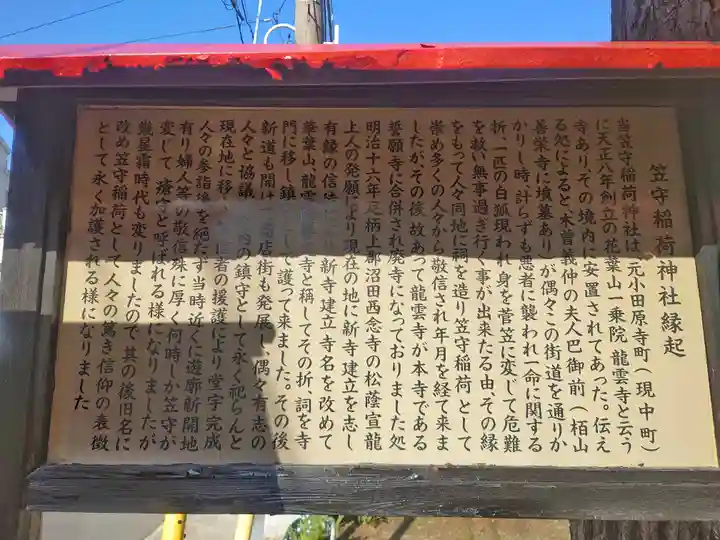 笠守稲荷神社縁起
当笠守稲荷神社は、元小田原寺町(現中町)
に天正八年創立の花葉山一乗院龍雲寺と云う
寺あり、その境内に安置されてあった。伝え
る処によると、木曽義仲の夫人巴御前(栢山
善栄寺に墳墓あり)が偶々この街道を通りか
かりし時、計らずも悪者に襲われ一命に関する
折、一匹の白狐現われ、身を菅笠に変じて危難
を救い無事過ぎ行く事が出来たる由、その縁
をもって人々同地に祠を造り笠守稲荷として
崇め多くの人々から敬信され年月を経て来ま
したが、その後故あって龍雲寺が本寺である
誓願寺に合併され廃寺になっておりました処
明治十六年足柄上郡沼田西念寺の松蔭宣龍
上人の発願により現在の地に新寺建立を志し
有縁の信 新寺建立、寺名を改めて
華葉山龍雲 寺と称してその折、詞を寺
門に移し鎮 して護って来ました。その後
新道も開け 店街も発展し、偶々有志の
人々と協議 内の鎮守として永く祀らんと
現在地に移 信者の援護により堂宇完成
人々の参詣後を絶たず当時近くに遊廓新開地
有り婦人等の敬信殊に厚く何時しか笠守が
変じて瘡守と呼ばれる様になりましたが
幾星霜時代も変りましたので其の後旧名に
改め笠守稲荷として人々の篤き信仰の表徴
として永く加護される様になりました